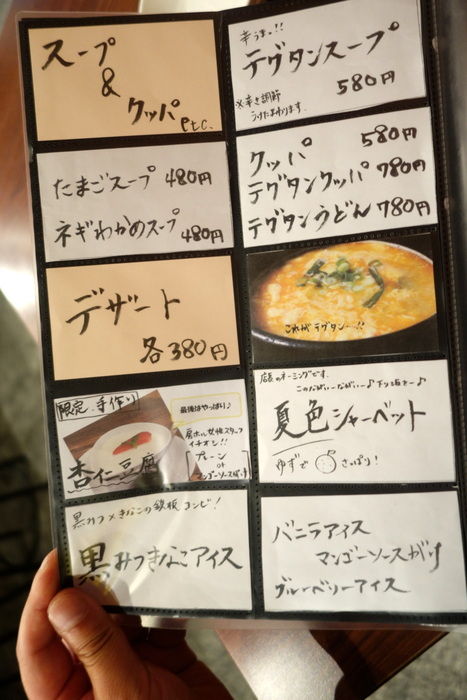 スープ
&
クッパ
etc.
辛うまっ!!
テグタンスープ
580円
※辛さ調節
うけたまわります。
たまごスープ 480円
ネギわかめスープ 480円
クッパ 580円
テグタンクッパ 780円
テグタンうどん 780円
デザート
各380円
これがテグタン…!!
限定.手作り
最後はやっぱり♪
イチオシ!!
杏仁豆腐
プレーン
or
マンゴーソースがけ
店長のネーミングです。
このながい〜ながい〜♪下り坂を〜♪
夏色シャーベット
ゆずで さっぱり!
黒みつきなこアイス
バニラアイス
マンゴーソースがけ
ブルーベリーアイス